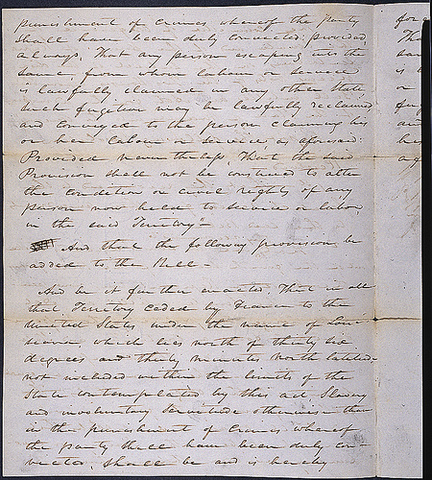 punishment of Crimes, whereof the party
shall have been duly convicted: provided
always, That any person escaping into the
same, from whom labour or service
is lawfully claimed in any other State
such fugitive may be lawfully reclaimed
and conveyed to the person claiming his
or her labour or service, as aforesaid:
Provided nevertheless, That the said
Provision shall not be construed to alter
the condition or civil rights of any
person now held to service or labor
in the said Territory"—
And that the following provision be
added to the Bill—
And be it further enacted That in all
that Territory ceded by France to the
United States under the name of Lou-
isiana, which lies north of thirty six
degrees and thirty minutes North latitude
not included within the limits of the
State contemplated by this act Slavery
and involuntary servitude otherwise than
in the punishment of Crimes whereof
the party shall have been duly con-
victed, shall be and is hereby